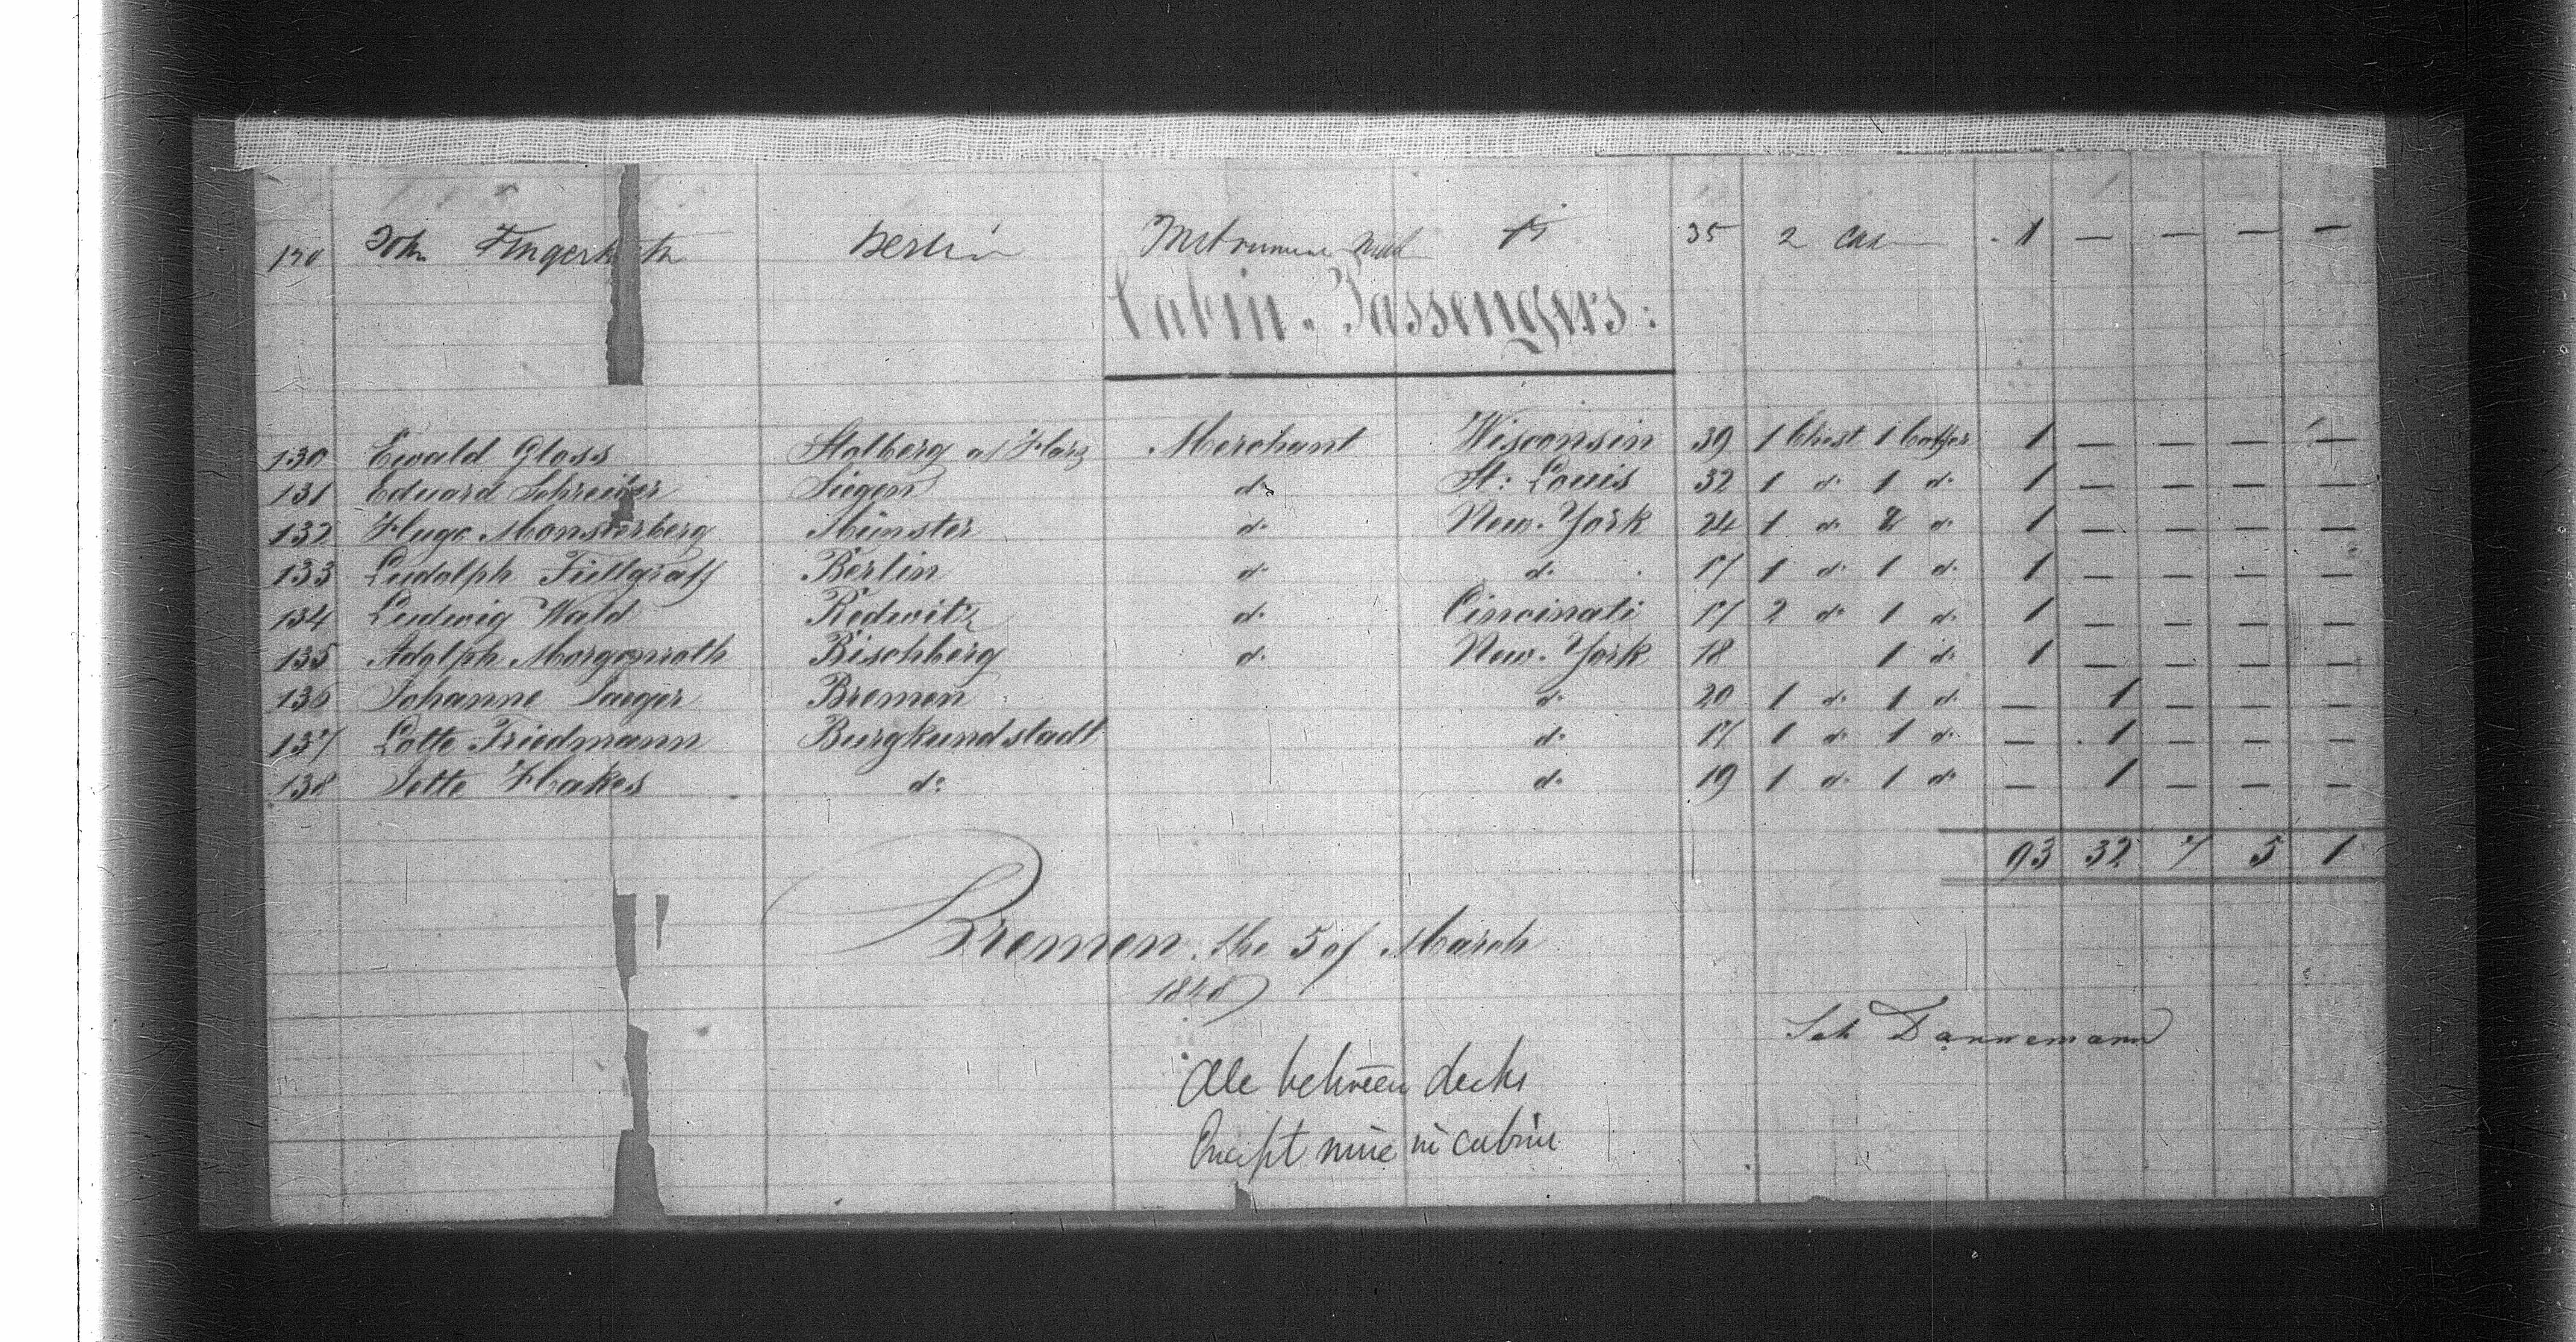 Joh Berlin 35 2 1 — — — —
Cabin-Passengers:
130 Ewald Gloss Stolberg a/Harz Merchant Wisconsin 39 1 Chest 1 Coffer 1 — — — —
131 Eduard Schreiber Siegen do St: Louis 32 1 do 1 do 1 — — — —
132 Hugo Monsterberg Münster do New-York 24 1 do 2 do 1 — — — —
133 Ludolph Füllgraff Berlin do do 17 1 do 1 do 1 — — — —
134 Ludwig Wald Redwitz do Cincinati 17 2 do 1 do 1 — — — —
135 Adolph Morgenroth Bischberg do New-York 18 1 do 1 — — — —
136 Johanne Jaeger Bremen do 20 1 do 1 do — 1 — — —
137 Lotte Friedmann Burgkundstadt do 17 1 do 1 do — 1 — — —
138 Jette Hakes do do 19 1 do 1 do — 1 — — —
93 32 7 5 1
Bremen, the 5 of March
1848
Dannemann
All between decks
Except nine in cabin